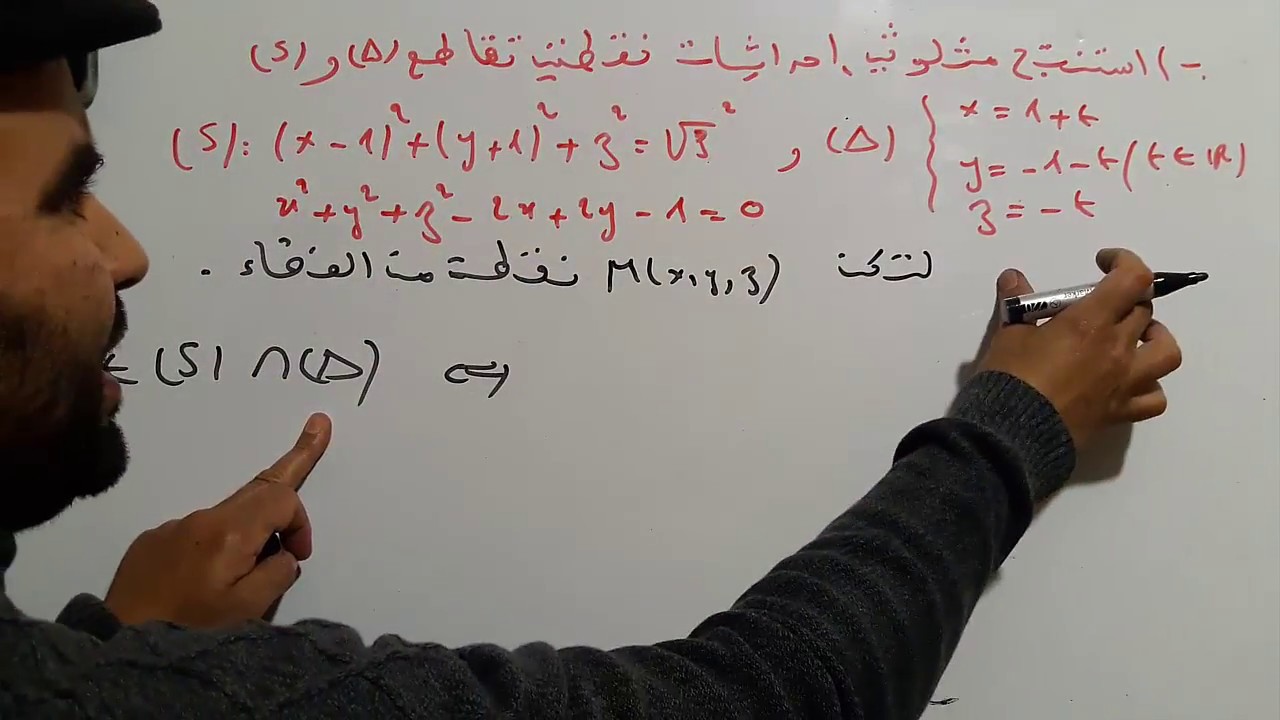 ب-) استنتج مثلوثي إحداثيات نقطتي تقاطع (Δ) و (S)
(S): (x - 1)² + (y + 1)² + z² = √3² , (Δ) { x = 1 + t
y = -1 - t (t ∈ ℝ)
z = - t
x² + y² + z² - 2x + 2y - 1 = 0
لتكن M(x, y, z) نقطة من الفضاء .
∈ (S) ∩ (Δ) ⇔